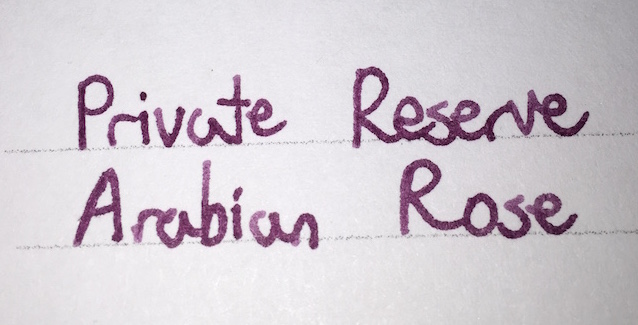 Private Reserve
Arabian Rose